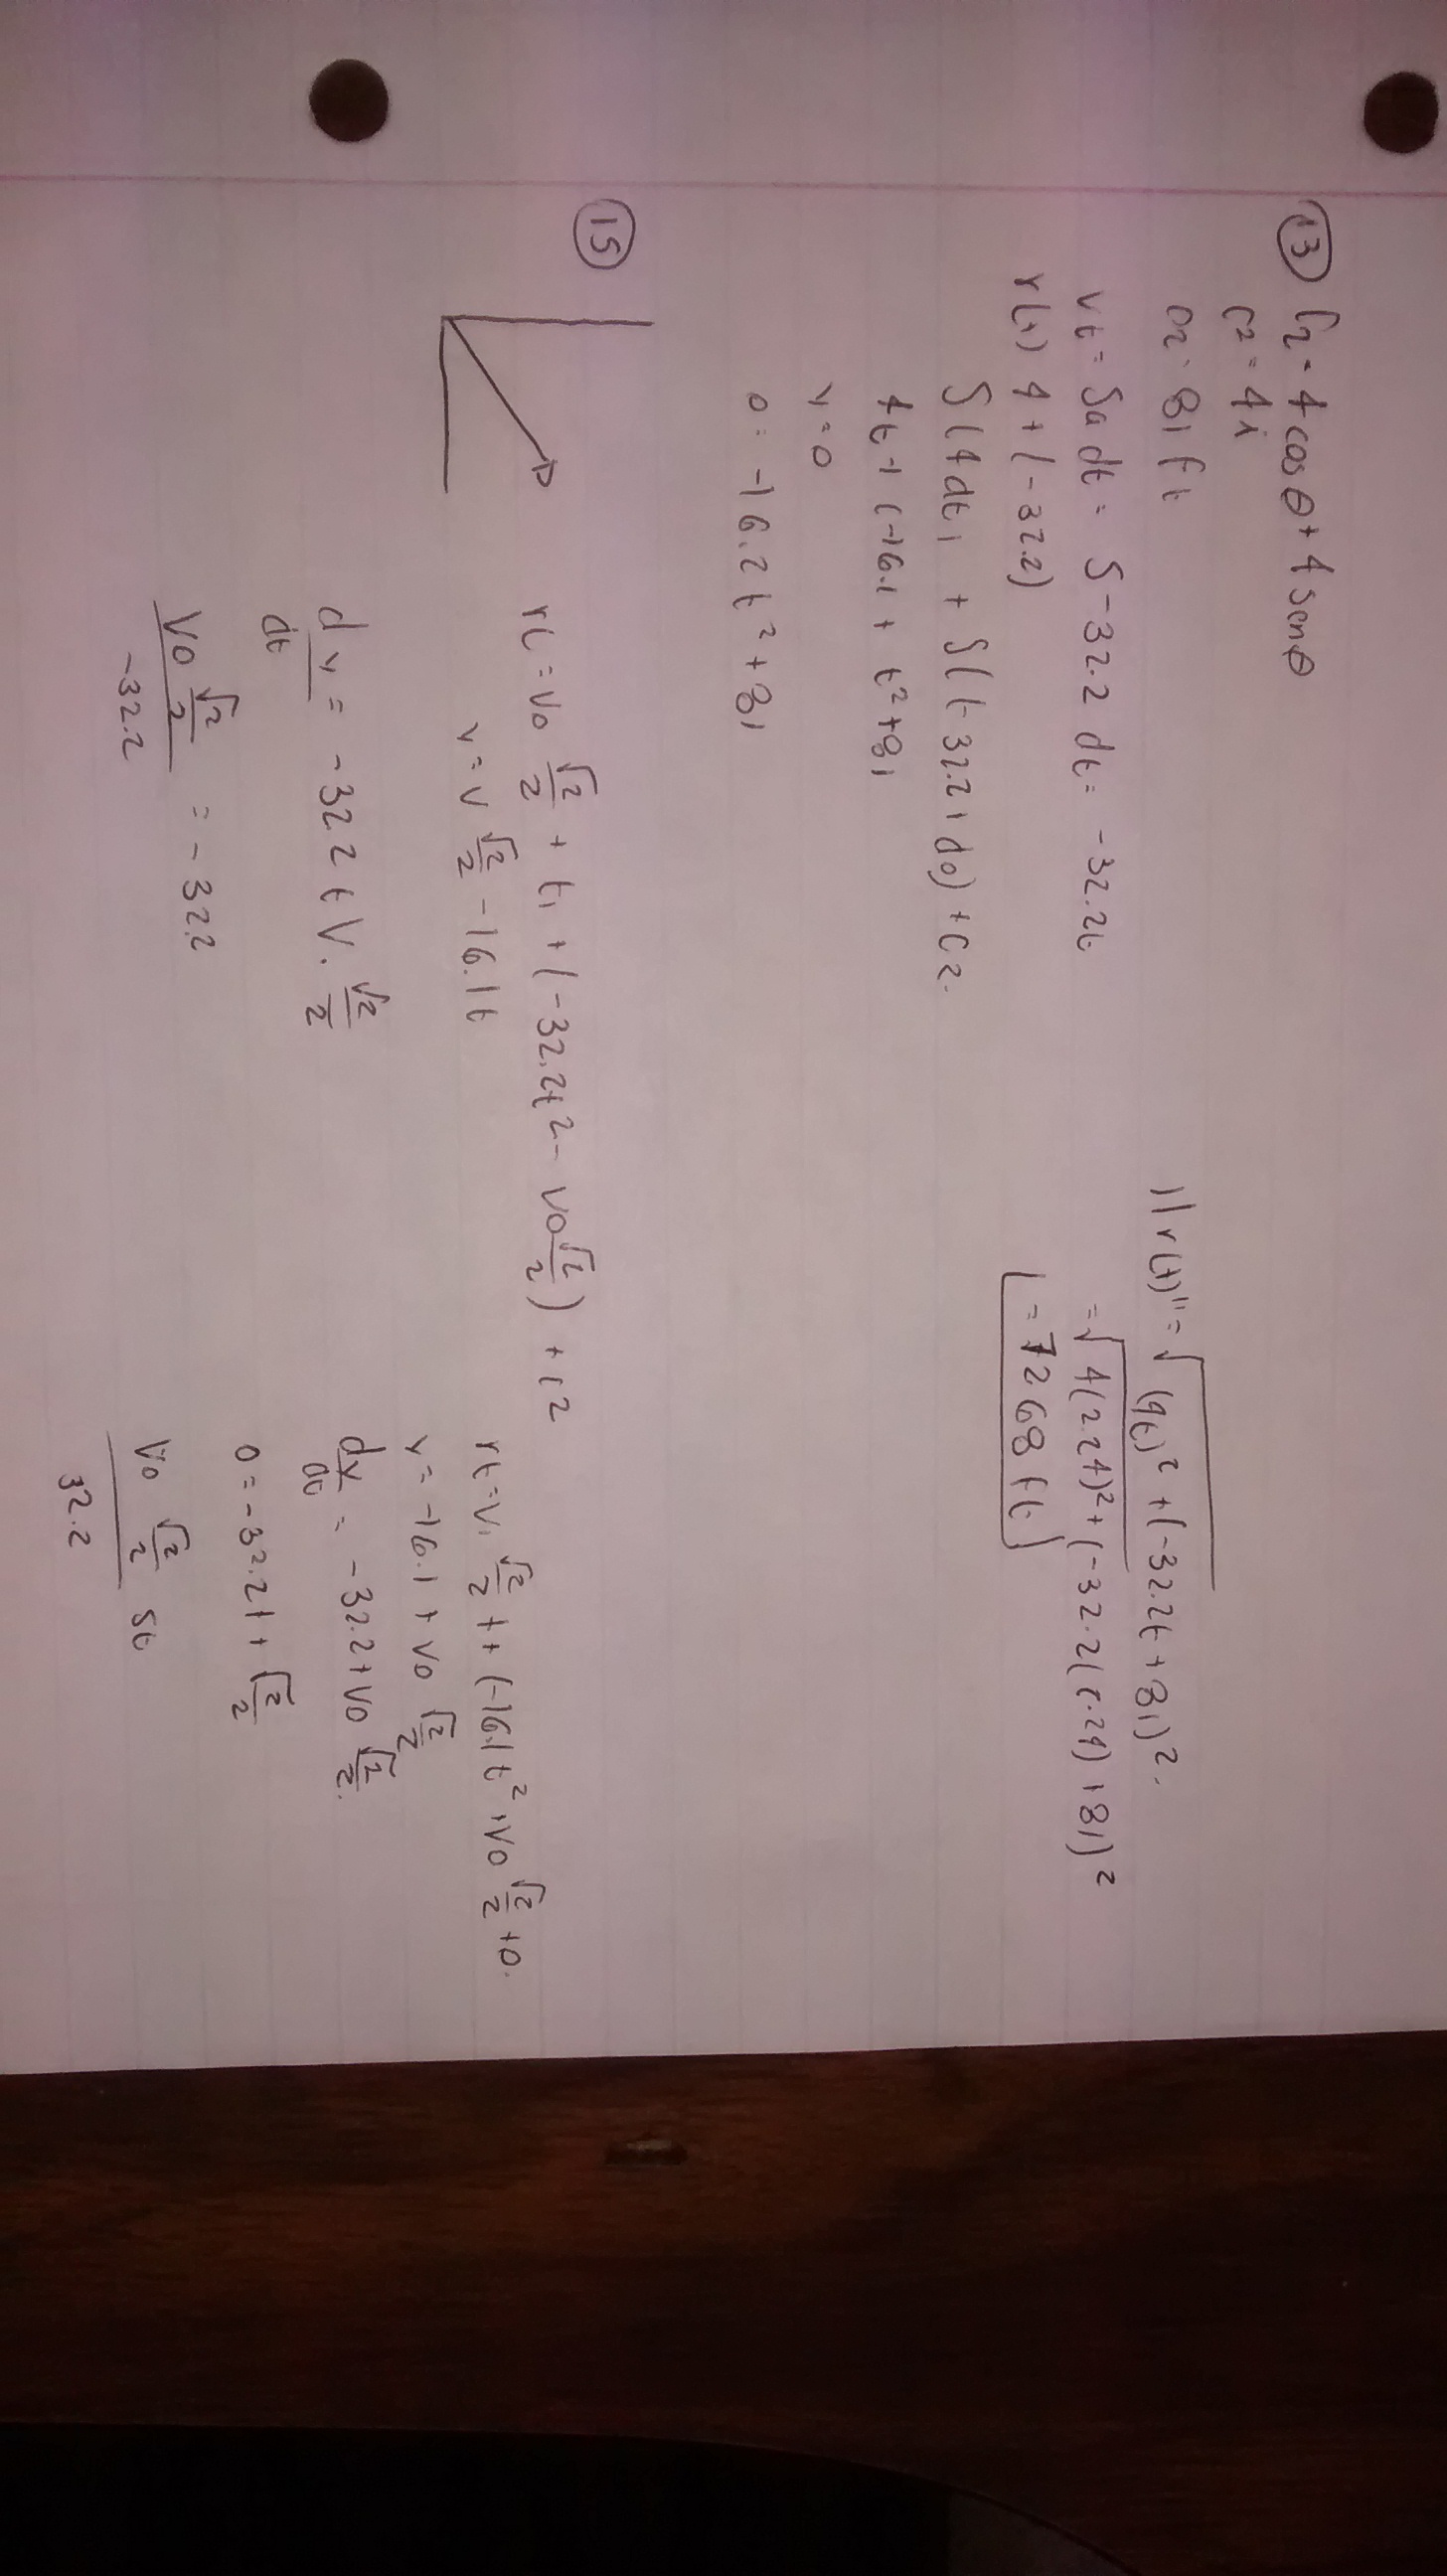 13 r2 = 4 cos θ + 4 sen θ
c2 = 4i
02 = 81 ft
vt = Sa dt = S -32.2 dt = -32.2t
r(t) 4 + (-32.2)
S(4dt, + S(t-32.2, do) + C2.
4t + (-16.1 + t² + 81
y = 0
0 = -16.2 t² + 81
||r(t)" = √(4t)² + (-32.2t + 81)².
= √4(2.24)² + (-32.2(2.24) + 81)²
= 7268 ft
15
rt = vo √2/2 + t, + (-32.2t² - vo √2/2) + c2
y = v √2/2 - 16.1t
dy/dt = -32.2 t V. √2/2
Vo √2/2 / -32.2 = -32.2
rt = v, √2/2 t + (-16.1t² + vo √2/2 + 0.
y = -16.1 + vo √2/2
dy/dt = -32.2 + vo √2/2.
0 = -32.2t + √2/2
Vo √2/2 / 32.2 st